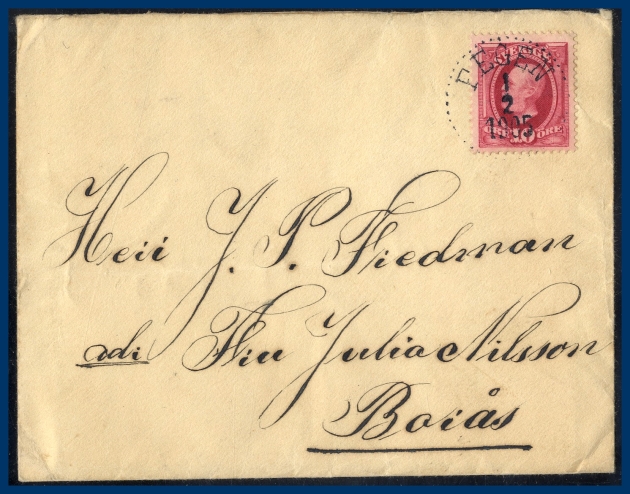 SVERIGE
FEGEN
1
2
1905
10 ÖRE
Herr J. P. Friedman
adr. Fru Julia Nilsson
Borås